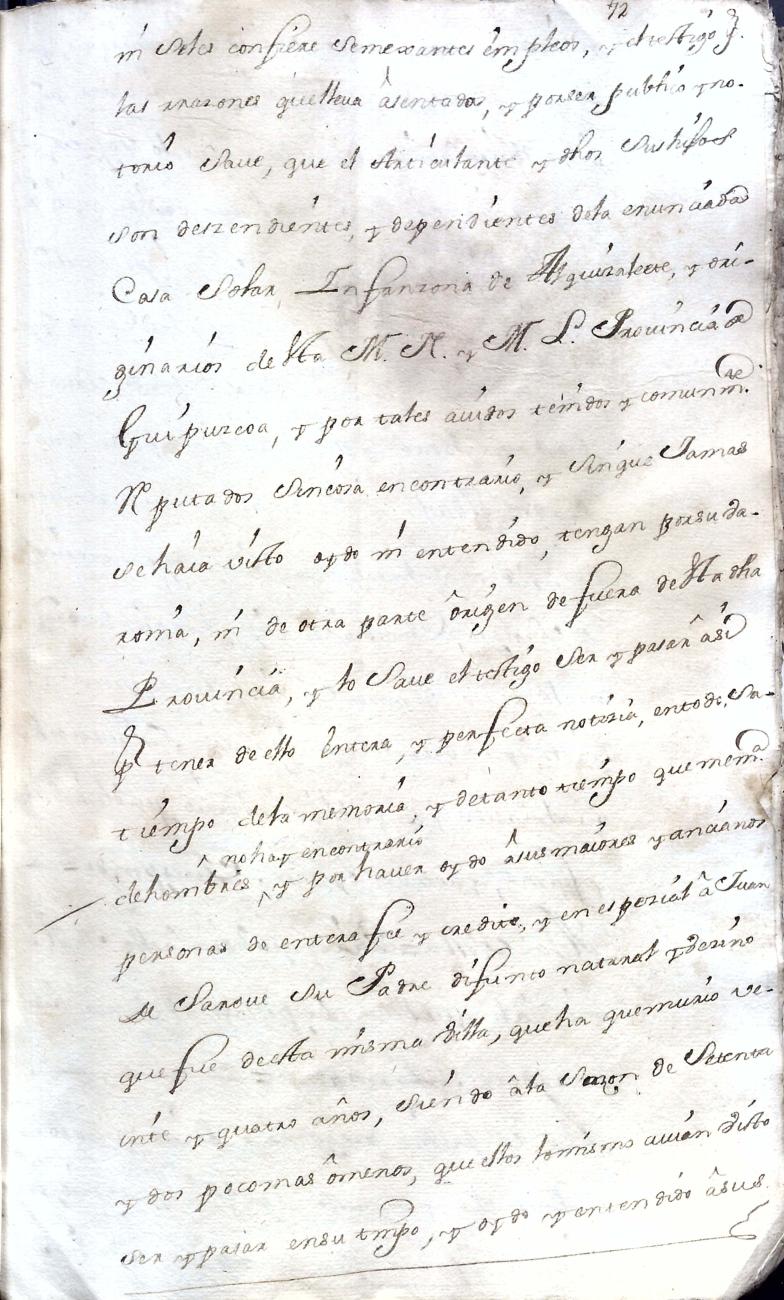 72
ni seles confiere semexantes empleos, y el testigo p.
las rrazones que lleva asentadas, y por ser publico y no-
torio save, que el Articulante y dhos sus hijos
son deszendientes, y dependientes dela enunciada
Casa Solar Infanzona de Alquizalete, y ori-
ginarios de esta M. N. y M. L. Provincia de
Guipuzcoa, y por tales avidos tenidos y comunmte.
Reputados sin cosa en contrario, y sin que Jamas
se haia visto oydo ni entendido, tengan por su va-
ronia, ni de otra parte origen de fuera de esta dha
Provincia, y lo save el testigo ser y pasar asi
p tener de ello entera, y perfecta notizia, en todo su
tiempo de la memoria, y de tanto tiempo que mema.
no hay en contrario
de hombres y por haver oydo a sus maiores y ancianos
personas de entera fee y credito, y en espezial a Juan
de Saroue su Padre difunto natural y vezino
que fue de esta misma villa, que ha que murio ve-
inte y quatro años, siendo a la sazon de setenta
y dos poco mas o menos, que ellos lo mismo avian visto
ser y pasar en su tmpo, y oydo y entendido a sus